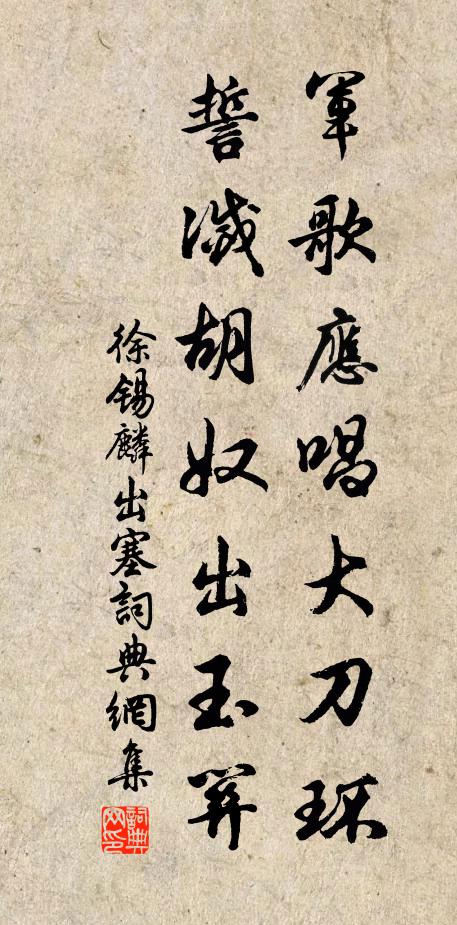 軍歌應唱大刀环
誓滅胡奴出玉関
徐錫麟出塞詞典網集
詞典網印